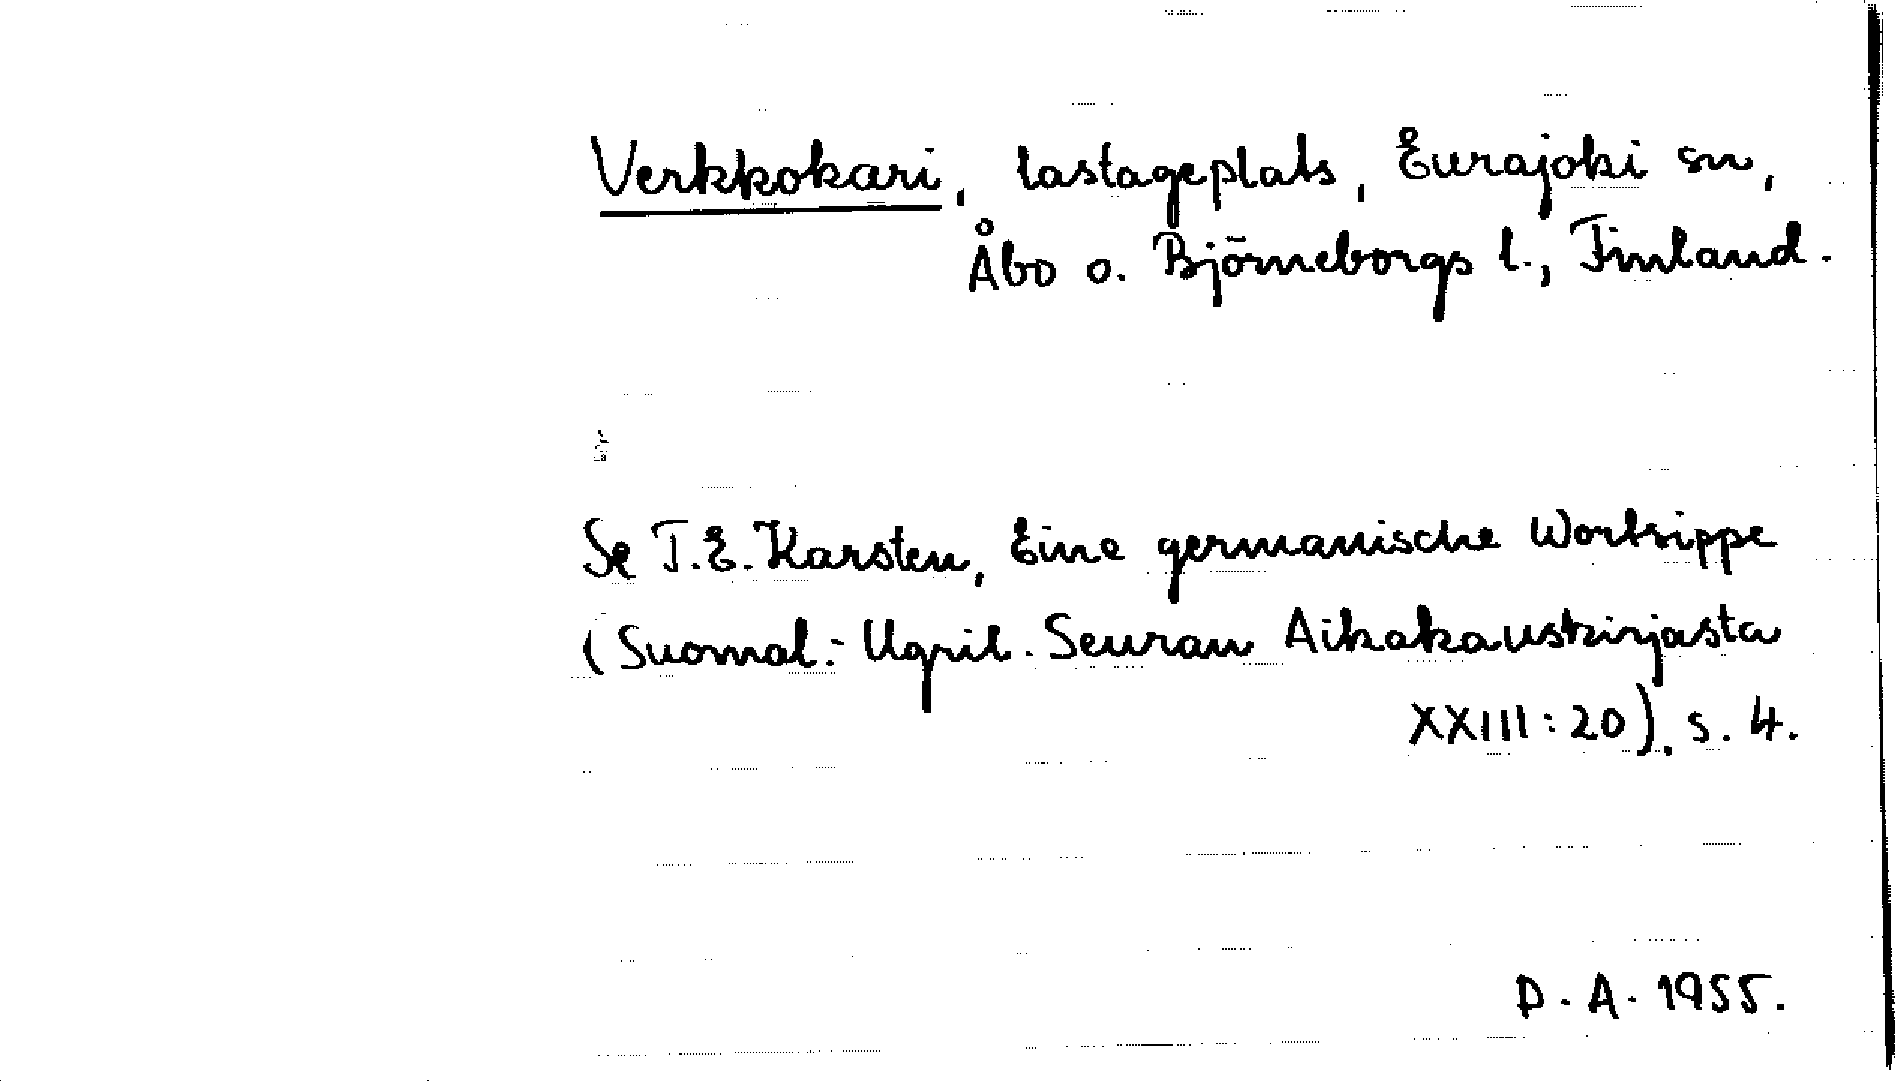 Verkkokari, lastageplats, Eurajoki sn,
Åbo o. Björneborgs l., Finland.
Se T.E. Karsten, Eine germanische Wortsippe
(Suomal.-Ugril. Seuran Aikakauskirjasta
XXIII:20). s. 4.
D.A. 1955.